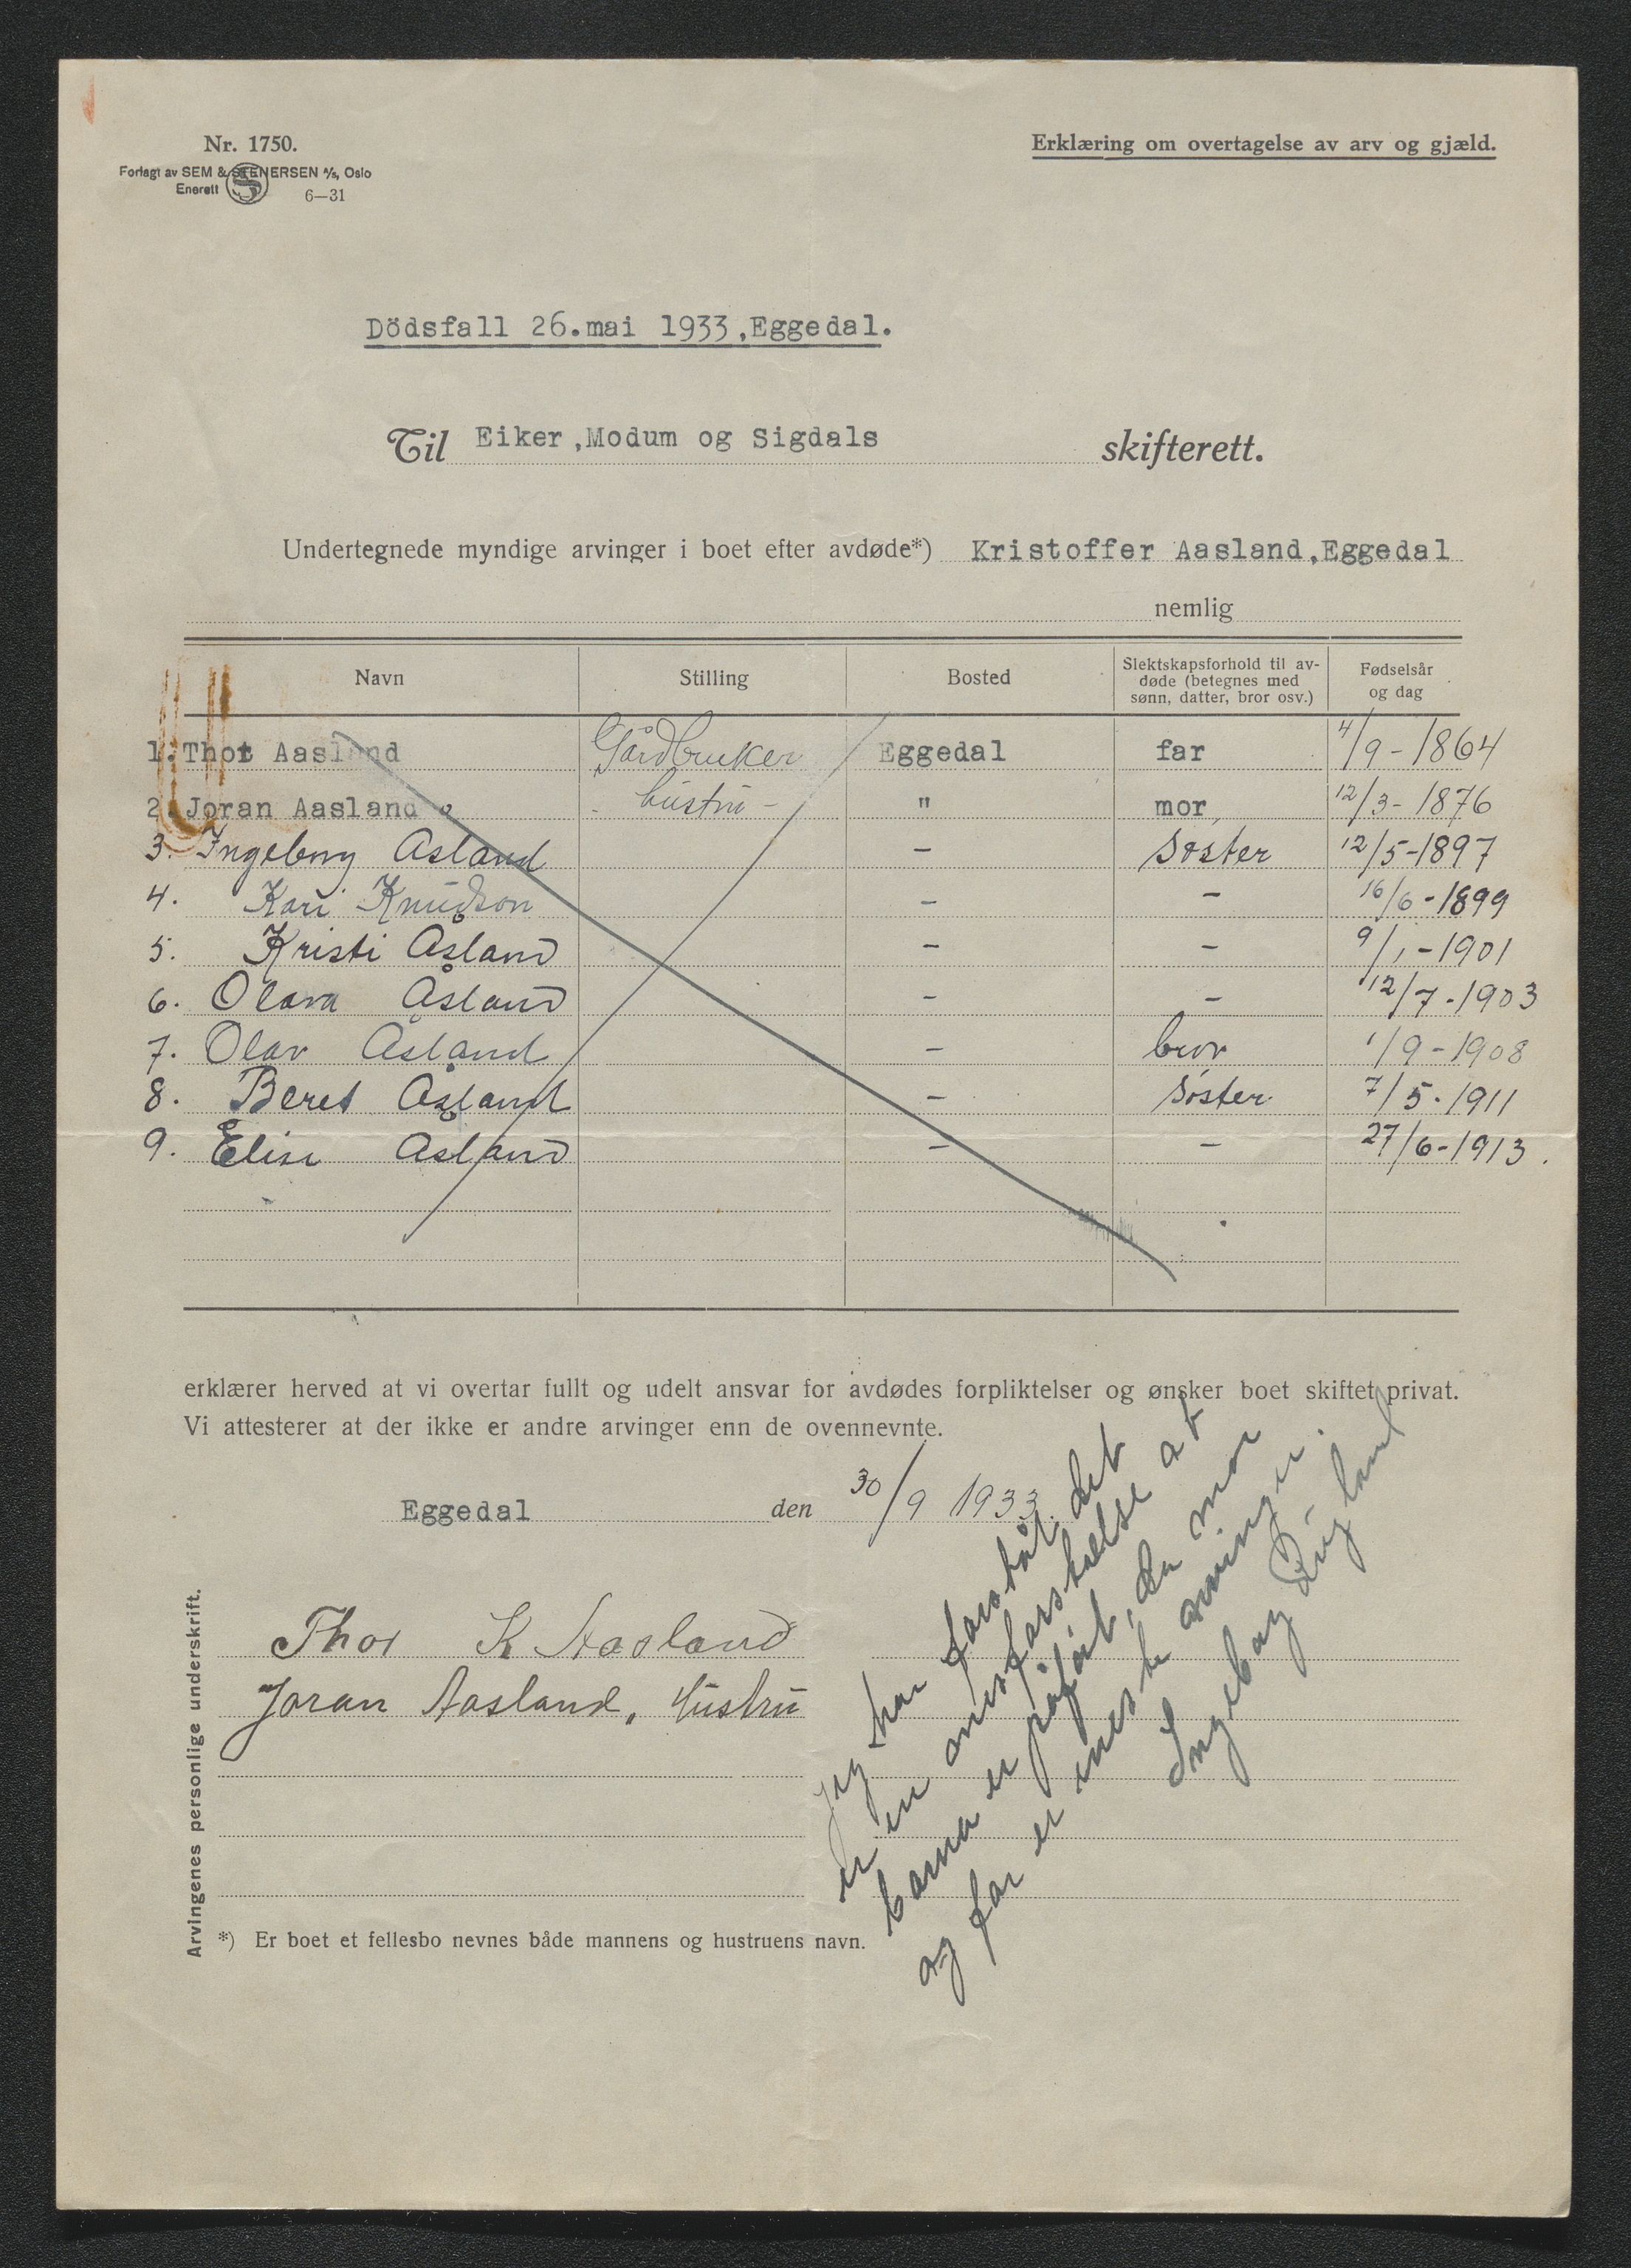 Nr. 1750.
Forlagt av SEM & STENERSEN A/s, Oslo
Enerett
6—31
Erklæring om overtagelse av arv og gjæld.
Dödsfall 26.mai 1933,Eggedal.
Til Eiker,Modum og Sigdals skifterett.
Undertegnede myndige arvinger i boet efter avdøde*) Kristoffer Aasland,Eggedal
nemlig
Navn Stilling Bosted Slektskapsforhold til av-
døde (betegnes med
sønn, datter, bror osv.)
Fødselsår
og dag
1. Thor Aasland Gårdbruker Eggedal far 4/9-1864
2. Joran Aasland hustru - " mor, 12/3-1876
3. Ingeborg Åsland - Søster 12/5-1897
4. Kari Knudson - - 16/6-1899
5. Kristi Åsland - - 9/1-1901
6. Olava Åsland - - 12/7-1903
7. Olav Åsland - bror 1/9-1908
8. Beret Åsland - Søster 7/5-1911
9. Elise Åsland - - 27/6-1913.
erklærer herved at vi overtar fullt og udelt ansvar for avdødes forpliktelser og ønsker boet skiftet privat.
Vi attesterer at der ikke er andre arvinger enn de ovennevnte.
Eggedal den 30/9 1933.
Arvingenes personlige underskrift.
Thor K Aasland
Joran Aasland, Hustru
Jeg har forstått det
er en misforståelse at
barna er påført, da mor
og far er næste arvinger.
Ingeborg
*) Er boet et fellesbo nevnes både mannens og hustruens navn.